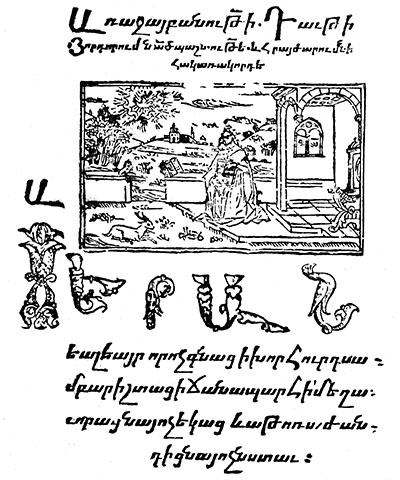 Առաջաբանութի. Դաւթի
Յորդորումն ածպաշտութե. և հրաժարումն ի
հակառակորդէ
Ա
ԵՐԱՆ
եալ է այր որ ոչ գնաց ի խորհուրդս ա
մբարիշտաց ի ճանապարհի մեղա
ւորաց նա ոչ եկաց և աթոռս ժան
դից նա ոչ նստաւ։